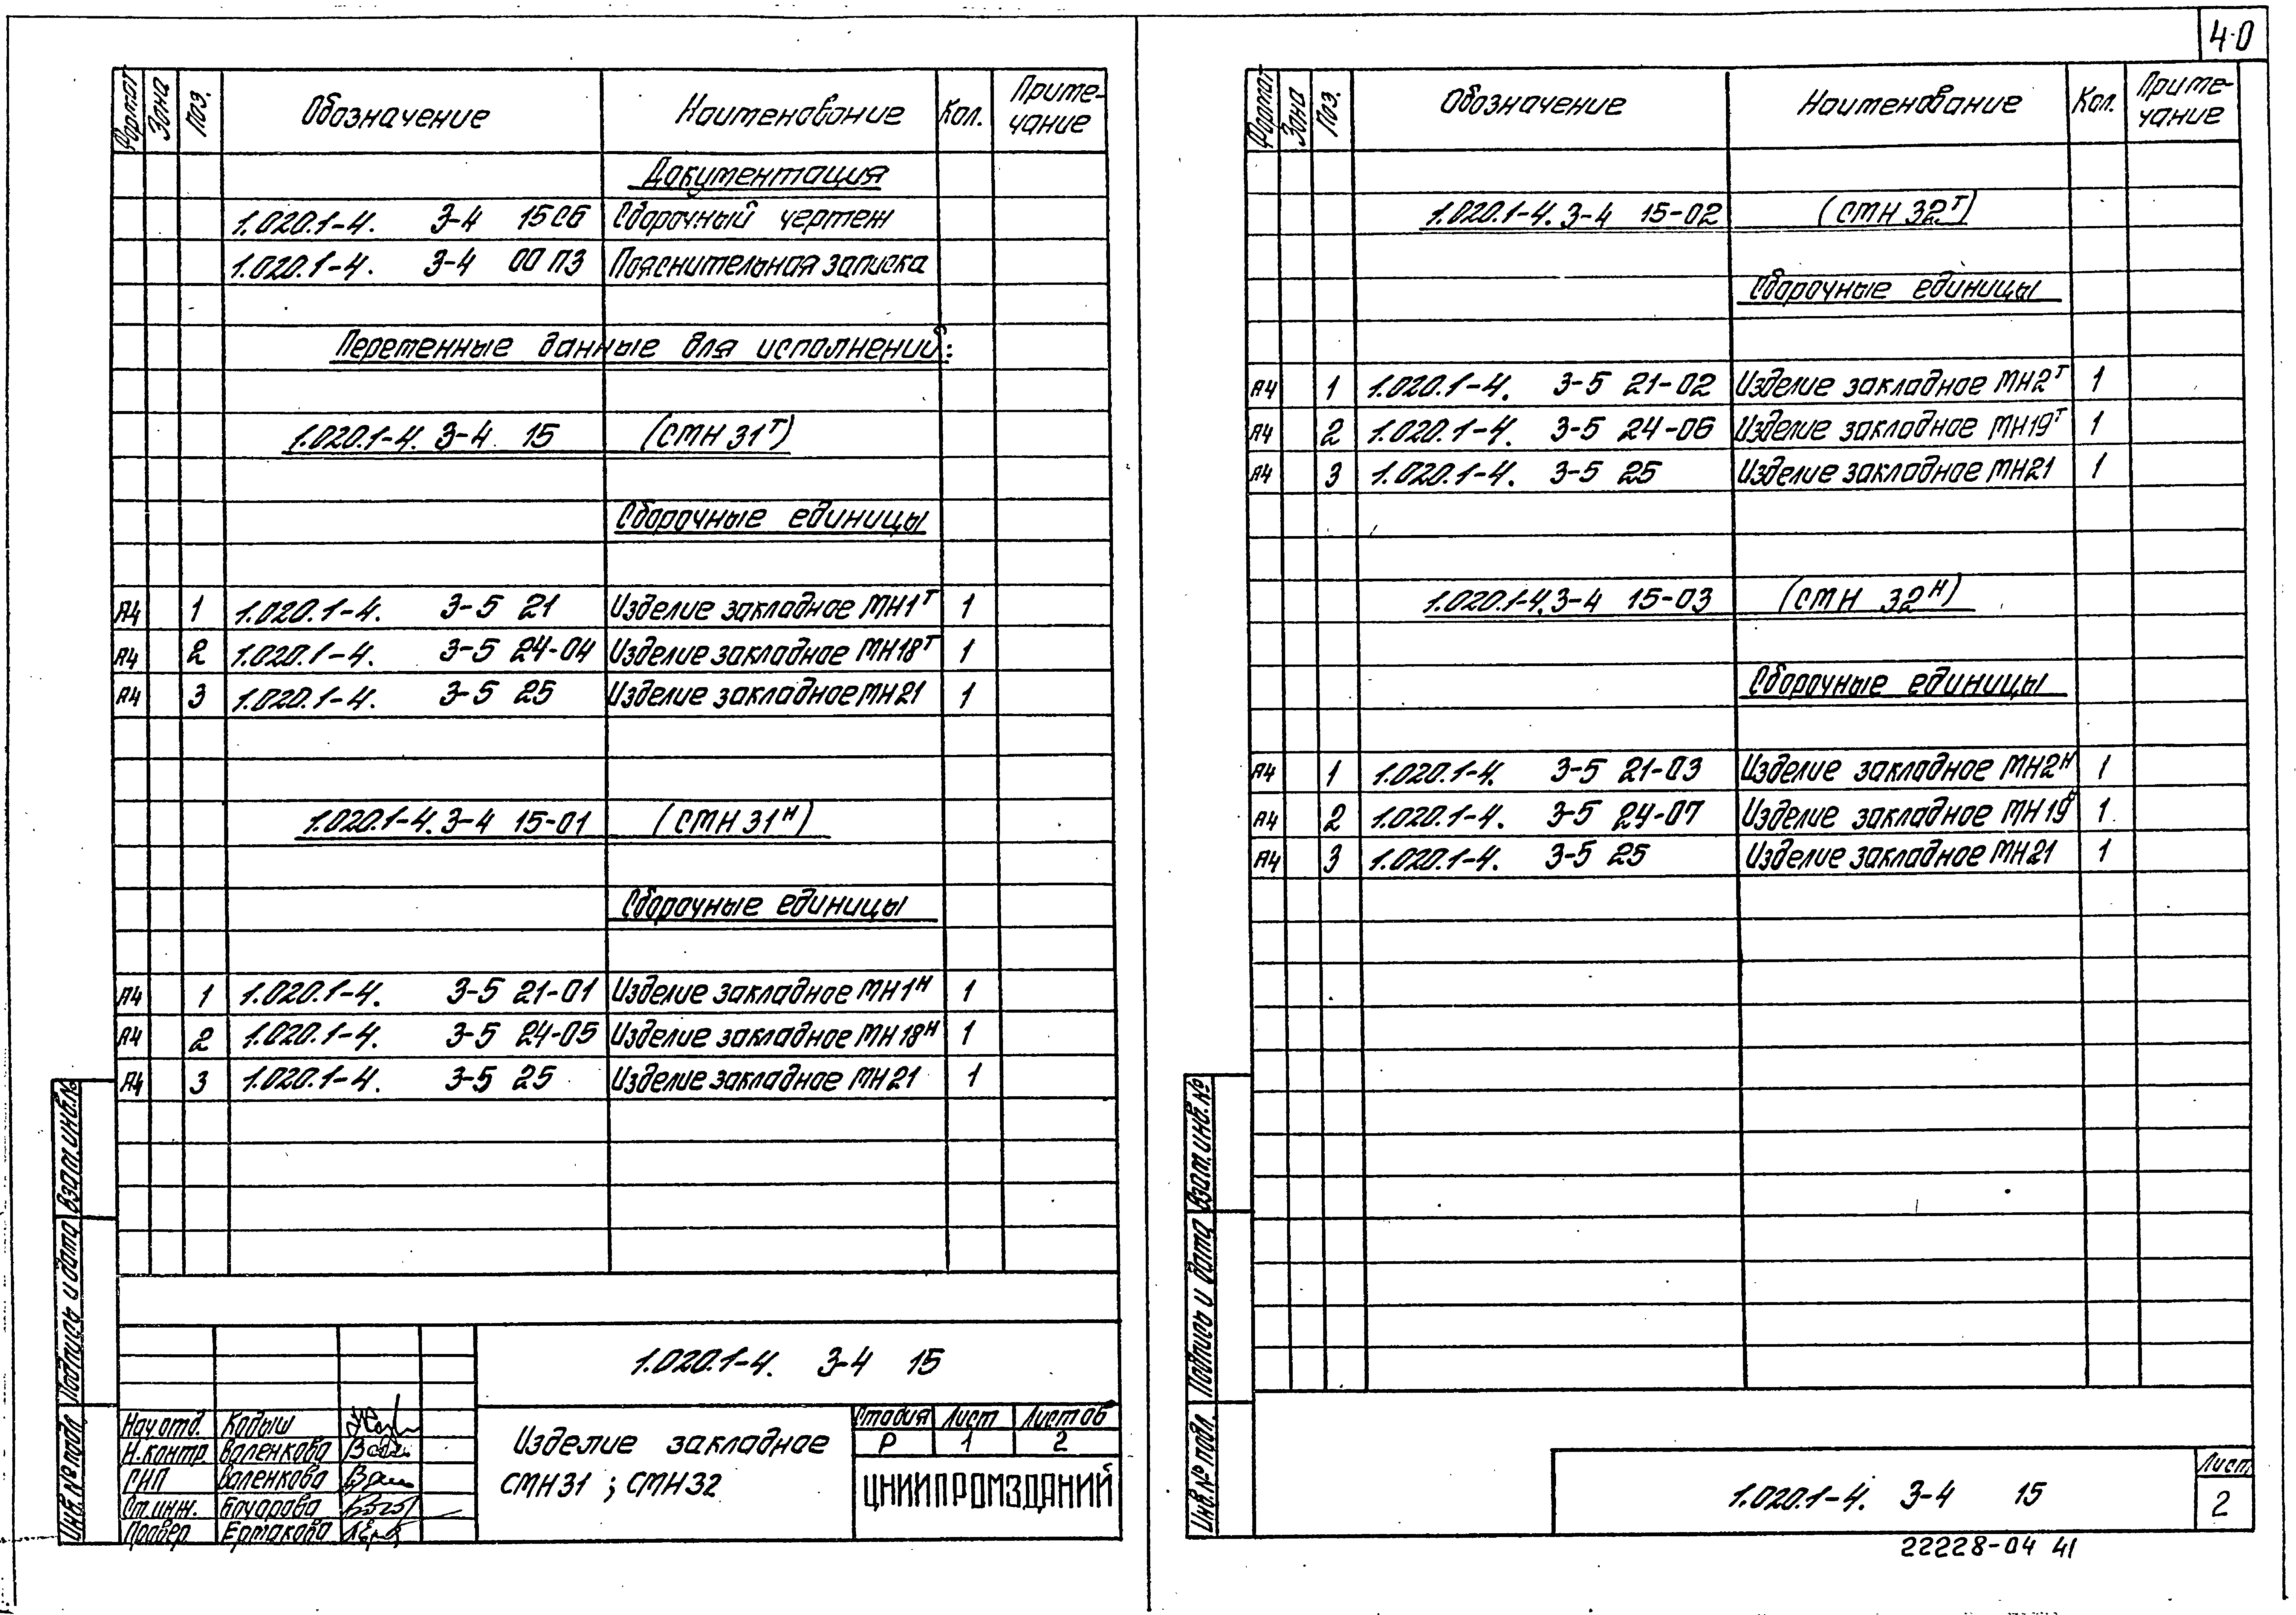 40
Формат Зона Поз. Обозначение Наименование Кол. Приме-
чание
Документация
1.020.1-4. 3-4 15СБ Сборочный чертеж
1.020.1-4. 3-4 00 ПЗ Пояснительная записка
Переменные данные для исполнений:
1.020.1-4. 3-4 15 (СМН 31Т)
Сборочные единицы
А4 1 1.020.1-4. 3-5 21 Изделие закладное МН1Т 1
А4 2 1.020.1-4. 3-5 24-04 Изделие закладное МН18Т 1
А4 3 1.020.1-4. 3-5 25 Изделие закладное МН21 1
1.020.1-4. 3-4 15-01 (СМН 31Н)
Сборочные единицы
А4 1 1.020.1-4. 3-5 21-01 Изделие закладное МН1Н 1
А4 2 1.020.1-4. 3-5 24-05 Изделие закладное МН18Н 1
А4 3 1.020.1-4. 3-5 25 Изделие закладное МН21 1
Взам. инв. №
Подпись и дата
Инв. № подл.
1.020.1-4. 3-4 15
Нач отд. Кодыш
Н.контр Валенкова
ГИП Валенкова
Ст.инж. Бочарова
Провер. Ермакова
Изделие закладное
СМН31 ; СМН32
Стадия Лист Листов
Р 1 2
ЦНИИПРОМЗДАНИЙ
Формат Зона Поз. Обозначение Наименование Кол. Приме-
чание
1.020.1-4. 3-4 15-02 (СМН 32Т)
Сборочные единицы
А4 1 1.020.1-4. 3-5 21-02 Изделие закладное МН2Т 1
А4 2 1.020.1-4. 3-5 24-06 Изделие закладное МН19Т 1
А4 3 1.020.1-4. 3-5 25 Изделие закладное МН21 1
1.020.1-4. 3-4 15-03 (СМН 32Н)
Сборочные единицы
А4 1 1.020.1-4. 3-5 21-03 Изделие закладное МН2Н 1
А4 2 1.020.1-4. 3-5 24-07 Изделие закладное МН19Н 1
А4 3 1.020.1-4. 3-5 25 Изделие закладное МН21 1
Взам. инв. №
Подпись и дата
Инв. № подл.
1.020.1-4. 3-4 15
Лист
2
22228-04 41